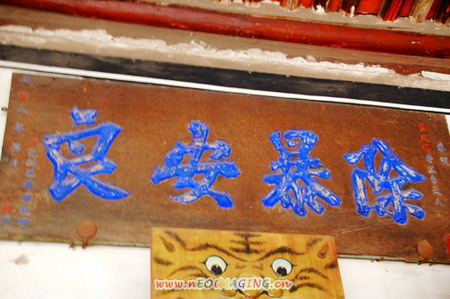 除暴安良
www.nEOiMAGING.cn